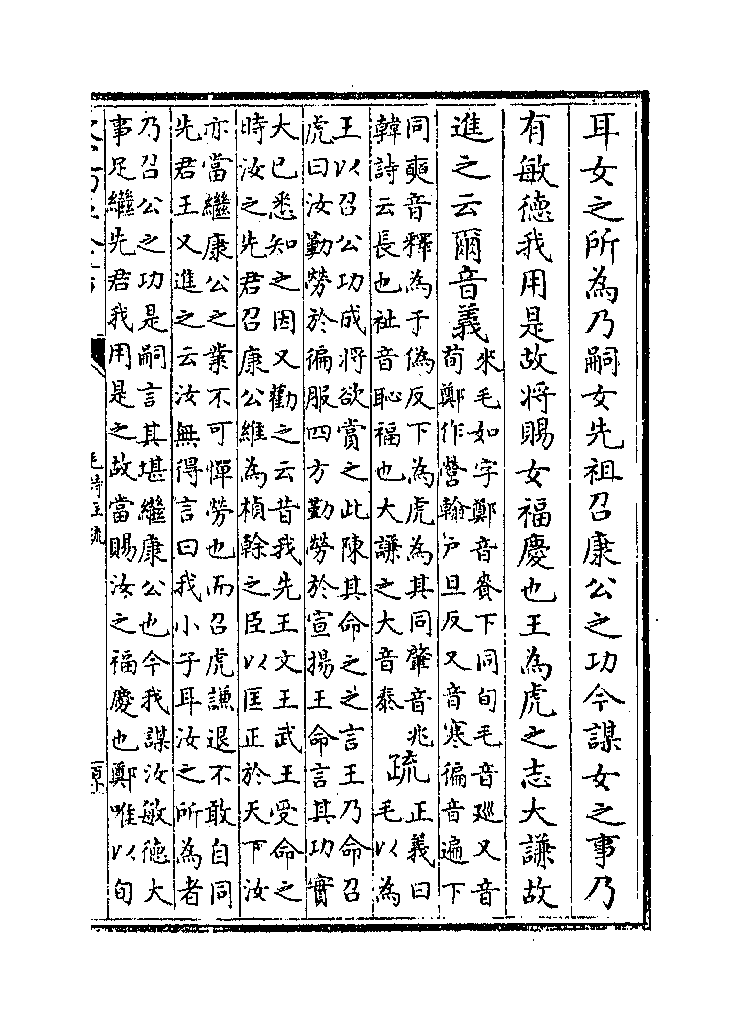 耳女之所為乃嗣女先祖召康公之功今謀女之事乃
有敏德我用是故將賜女福慶也王為虎之志大謙故
進之云爾音義
來毛如字鄭音賚下同旬毛音巡又音
荀鄭作營翰戸旦反又音寒徧音遍下
同奭音釋為于偽反下為虎為其同肇音兆
韓詩云長也祉音恥福也大謙之大音泰
疏
正義曰
毛以為
王以召公功成將欲賞之此陳其命之之言王乃命召
虎曰汝勤勞於徧服四方勤勞於宣揚王命言其功實
大已悉知之因又勸之云昔我先王文王武王受命之
時汝之先君召康公維為楨榦之臣以匡正於天下汝
亦當繼康公之業不可憚勞也而召虎謙退不敢自同
先君王又進之云汝無得言曰我小子耳汝之所為者
乃召公之功是嗣言其堪繼康公也今我謀汝敏德大
事足繼先君我用是之故當賜汝之福慶也鄭唯以旬
毛詩注疏